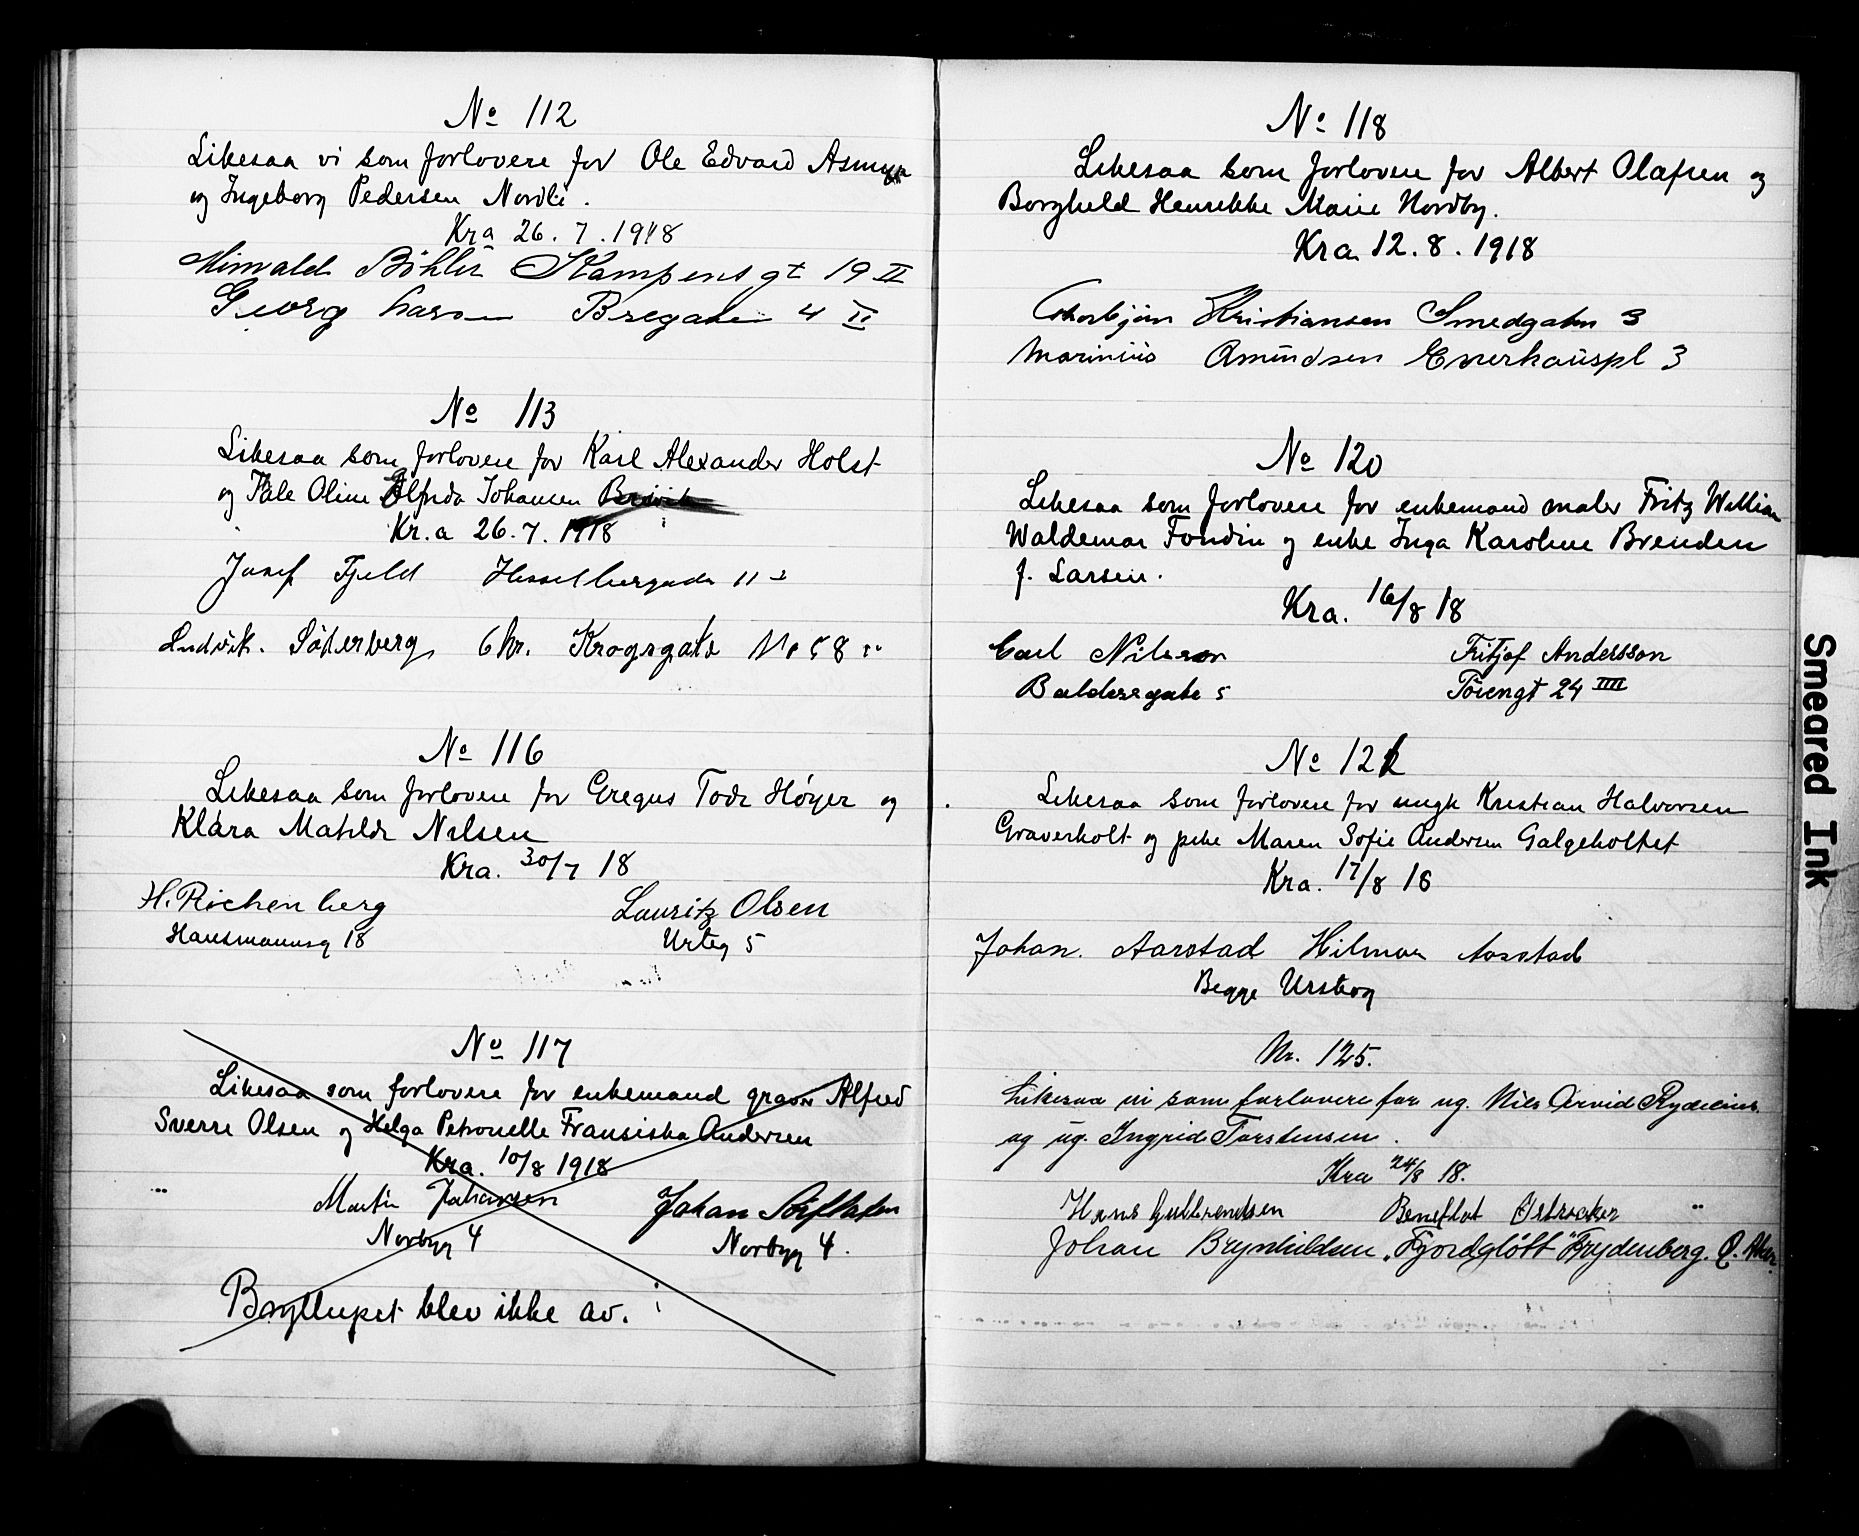 No 112
Likesaa vi som forlovere for Ole Edvard
og Ingeborg Pedersen Nordli.
Kra 26.7.1918
Minvald Böhler Kampensgt 19 II
Georg Larsen Bregaten 4 II
No 113
Likesaa som forlovere for Karl Alexander Holst
og Pale Oline Elfrida Johansen
Kr.a 26.7.1918
Josef Fjeld Hesselbergsgade 11
Ludvik. Söderberg Chr. Krogsgate No 58
No 116
Likesaa som forlovere for Gregus Tode Høyer og
Klara Matilde Nilsen
Kra. 30/7 18
H. Richenberg Lauritz Olsen
Hausmannsg 18 Urteg 5
No 117
Likesaa som forlovere for enkemand graver Alfred
Sverre Olsen og Helga Petronelle Fransiska Andersen
Kra. 10/8 1918
Martin Johansen Johan
Norbyg 4 Norbyg 4.
Bryllupet blev ikke av.
No 118
Likesaa som forlovere for Albert Olafsen og
Borghild Henrikke Marie Nordby.
Kra 12.8.1918
Thorbjörn Kristiansen Smedgaten 3
Marinius Amundsen Enerhaugspl 3
No 120
Likesaa som forlovere for enkemand maler Fritz William
Waldemar Fondin og enke Inga Karoline Brenden
f. Larsen.
Kra. 16/8 18
Carl Nilsson Fritjof Andersson
Baldersgate 5 Töiengt 24 IIII
No 121
Likesaa som forlovere for ungk Kristian Halvorsen
Graverholt og pike Maren Sofie Andersen Galgeholtet
Kra. 17/8 18
Johan. Aarstad Hilmar Aarstad
Begge Urskog
Nr. 125.
Likesaa vi som forlovere for ug. Nils Arvid Rydelius
og ug. Ingrid Torstensen.
Kra 24/8 18.
Hans Gulbrandsen Bensflat Østreaker
Johan Brynhildsen "Fjordgløtt" Frydenberg. Ø. Aker.
Smeared Ink